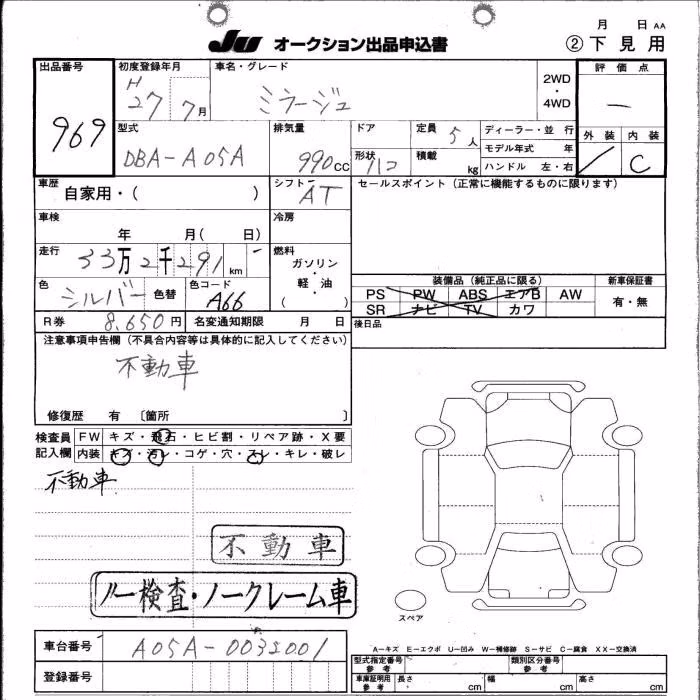 月 日 AA
JU オークション出品申込書 ② 下見用
出品番号 969
初度登録年月 H 27年 7月
車名・グレード ミラージュ
2WD・4WD
評価点 ー
外装 ／ 内装 C
型式 DBA-A05A
排気量 990cc
ドア
形状 ハコ
定員 5人
積載 kg
ディーラー・並行
モデル年式 年
ハンドル 左・右
車歴 自家用・( )
シフト AT
セールスポイント（正常に機能するものに限ります）
車検 年 月( 日)
冷房
走行 33万2千291km
燃料 ガソリン・軽油 ( )
色 シルバー 色替
色コード A66
装備品（純正品に限る）
PS PW ABS エアB AW
SR ナビ TV カワ
新車保証書 有・無
R券 8,650円 名変通知期限 月 日
後日品
注意事項申告欄（不具合内容等は具体的に記入してください）
不動車
修復歴 有 〔箇所 〕
検査員記入欄
FW キズ・飛石・ヒビ割・リペア跡・X要
内装 キズ・汚レ・コゲ・穴・スレ・キレ・破レ
不動車
不動車
ノー検査・ノークレーム車
スペア
A－キズ E－エクボ U－凹み W－補修跡 S－サビ C－腐食 XX－交換済
車台番号 A05A-0035001
登録番号
型式指定番号 参考
類別区分番号 参考
車庫証明用 参考
長さ cm 幅 cm 高さ cm